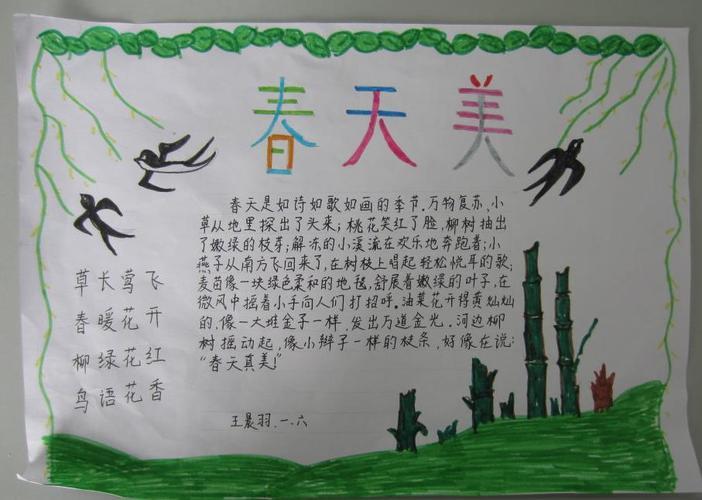 春天美
春天是如诗如歌如画的季节.万物复苏,小
草从地里探出了头来;桃花笑红了脸,柳树抽出
了嫩绿的枝芽;解冻的小溪流在欢乐地奔跑着;小
燕子从南方飞回来了,在树枝上唱起轻松悦耳的歌;
麦苗像一块绿色柔和的地毯,舒展着嫩绿的叶子,在
微风中摇着小手向人们打招呼。油菜花开得黄灿灿
的,像一大堆金子一样,发出万道金光。河边柳
树摇动起,像小辫子一样的枝条,好像在说:
“春天真美!”
草长莺飞
春暖花开
柳绿花红
鸟语花香
王晨羽.一.六